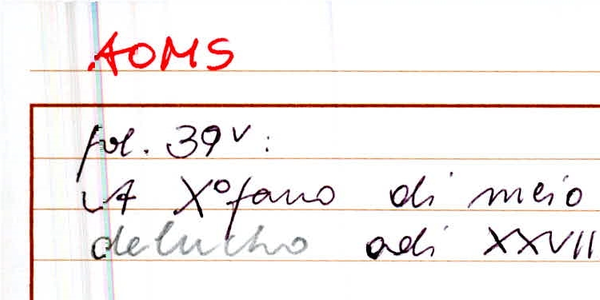 AOMS
fol. 39v:
A Xºfano di meio
delucho adi XXVII